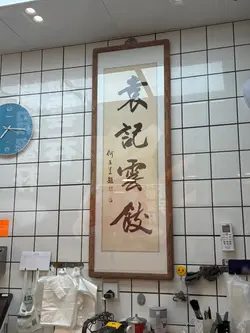 袁記雲餃